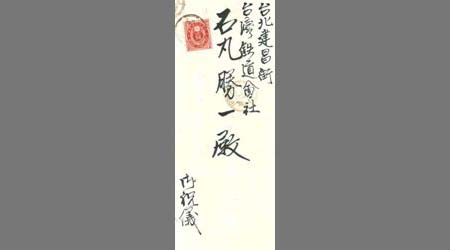 台北建昌街
台湾鉄道会社
石丸勝一殿
御祝儀